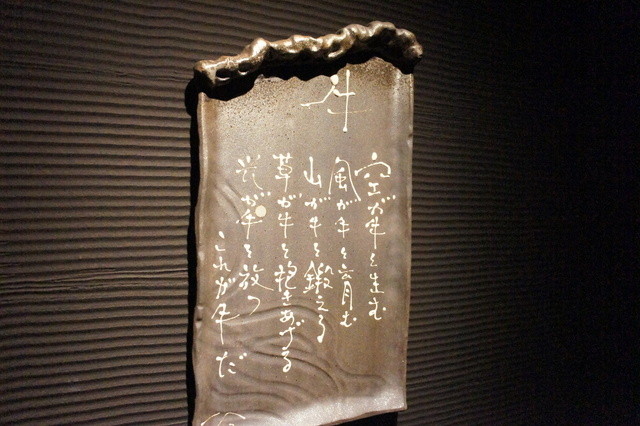 牛
空が牛を生む
風が牛を育む
山が牛を鍛える
草が牛を抱きあげる
炎が牛を放つ
これが牛だ